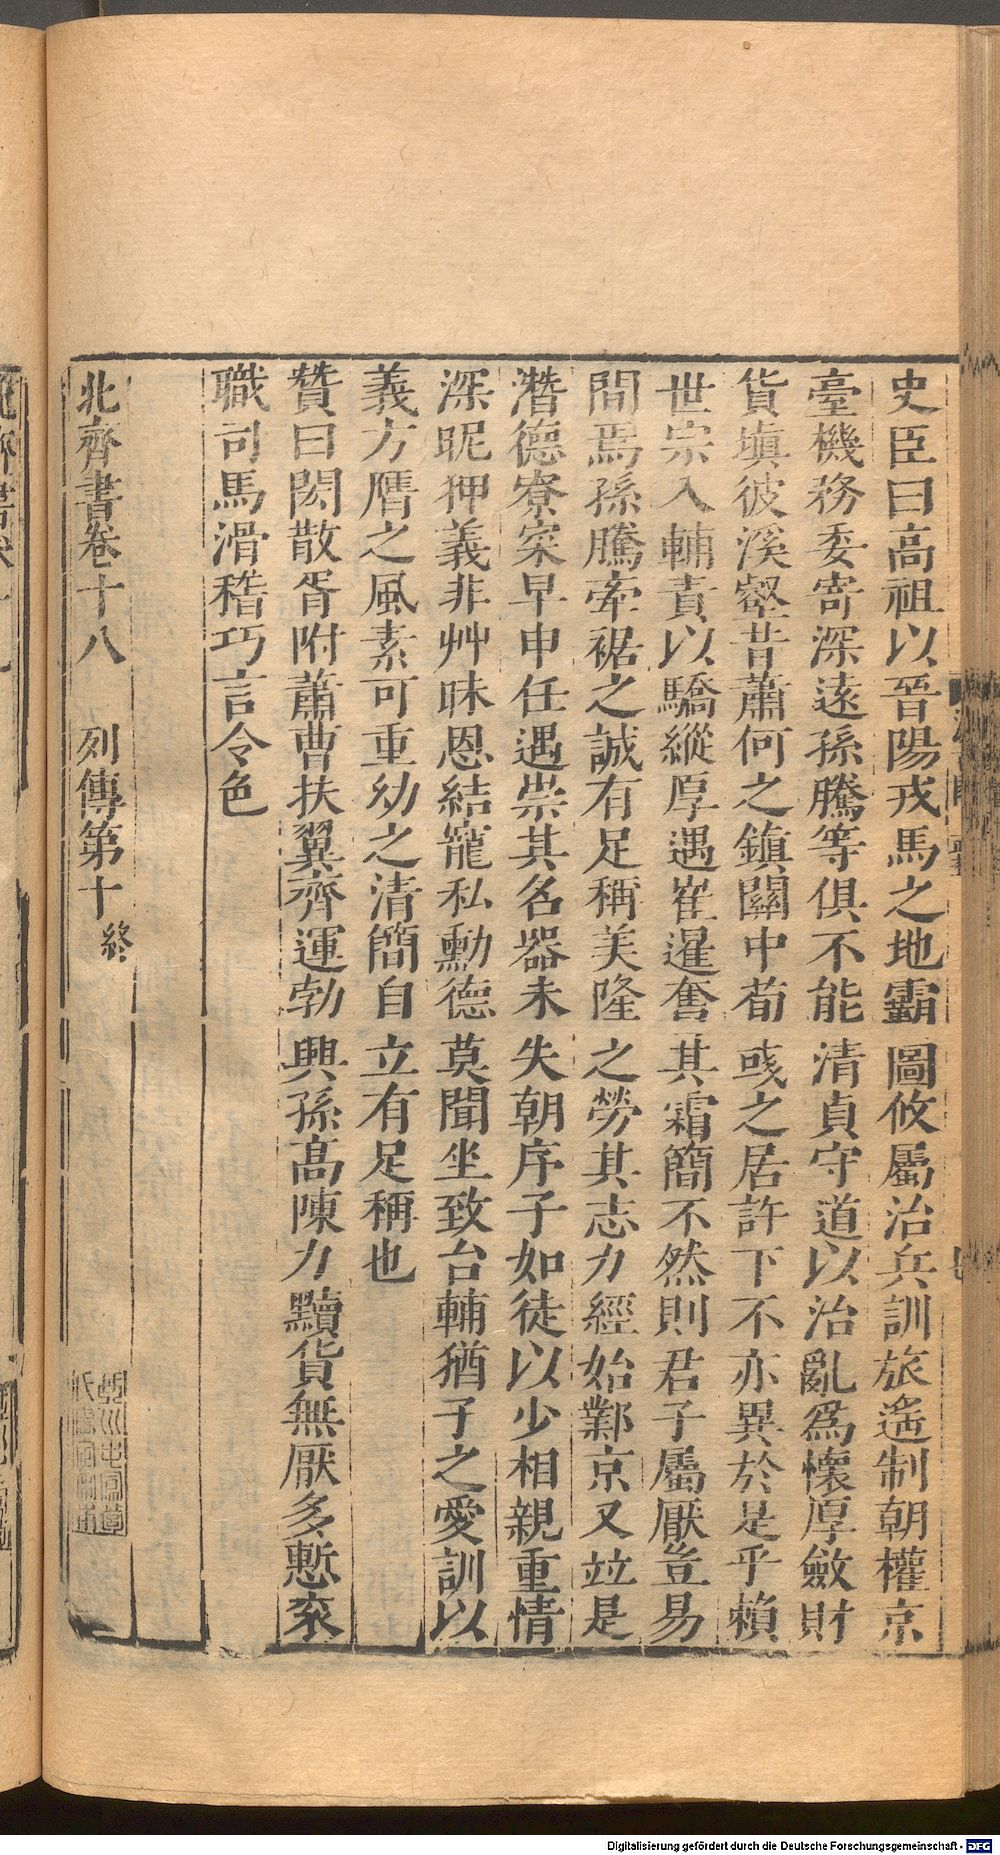 史臣曰高祖以晉陽戎馬之地霸圖攸屬治兵訓旅遙制朝權京
臺機務委寄深遠孫騰等俱不能清貞守道以治亂爲懷厚斂財
貨塡彼溪壑昔蕭何之鎮關中荀彧之居許下不亦異於是乎賴
世宗入輔責以驕縱厚遇崔暹奮其霜簡不然則君子屬厭豈易
間焉孫騰牽裾之誠有足稱美隆之勞其志力經始鄴京又竝是
潛德寮寀早申任遇崇其名器未失朝序子如徒以少相親重情
深昵狎義非艸昧恩結寵私勳德莫聞坐致台輔猶子之愛訓以
義方膺之風素可重幼之清簡自立有足稱也
贊曰閎散胥附蕭曹扶翼齊運勃興孫高陳力黷貨無厭多慙衮
職司馬滑稽巧言令色
北齊書卷十八 列傳第十 終
Digitalisierung gefördert durch die Deutsche Forschungsgemeinschaft - DFG